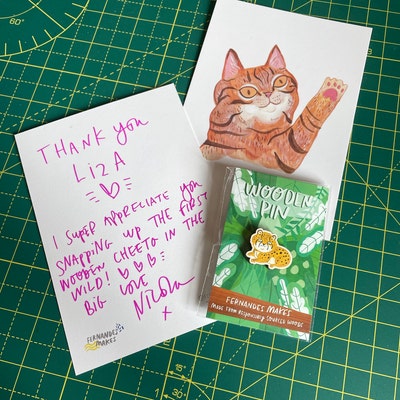 THANK YOU
LIZA
I SUPER APPRECIATE YOU
SNAPPING UP THE FIRST
WOODEN CHEETO IN THE
WILD!
BIG LOVE
NICOLA
X
FERNANDES
MAKES
WOODEN
PIN
FERNANDES MAKES
MADE FROM RESPONSIBLY SOURCED WOODS
60°
30°